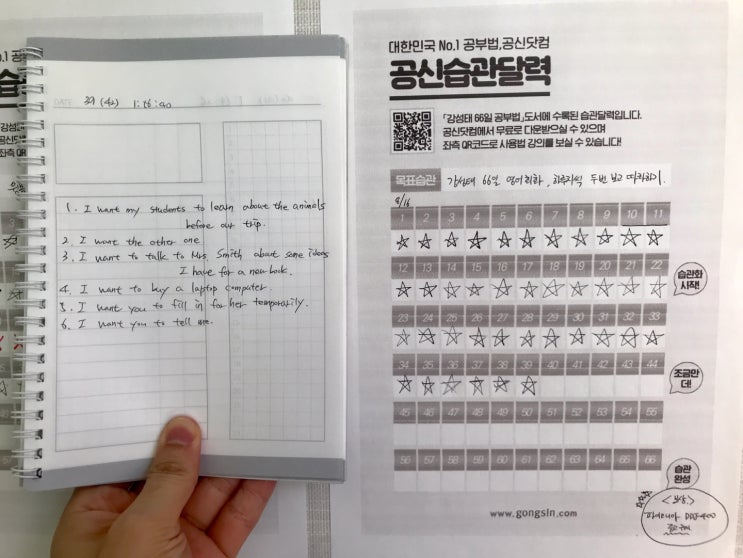 39 (42) 1:56:40
1. I want my students to learn about the animals
before our trip.
2. I want the other one
3. I want to talk to Mrs. Smith about some ideas
I have for a new book.
4. I want to buy a laptop computer.
5. I want you to fill in for her temporarily.
6. I want you to tell me.
대한민국 No.1 공부법, 공신닷컴
공신습관달력
「강성태 66일 공부법」도서에 수록된 습관달력입니다.
공신닷컴에서 무료로 다운받으실 수 있으며
좌측 QR코드로 사용법 강의를 보실 수 있습니다!
목표습관 강성태 66일 영어회화, 하루치씩 두번 보고 따라하기.
9/16
1 2 3 4 5 6 7 8 9 10 11
12 13 14 15 16 17 18 19 20 21 22
습관화
시작!
23 24 25 26 27 28 29 30 31 32 33
34 35 36 37 38 39 40 41 42 43 44
조금만
더!
45 46 47 48 49 50 51 52 53 54 55
56 57 58 59 60 61 62 63 64 65 66
습관
완성
www.gongsin.com
<보상>